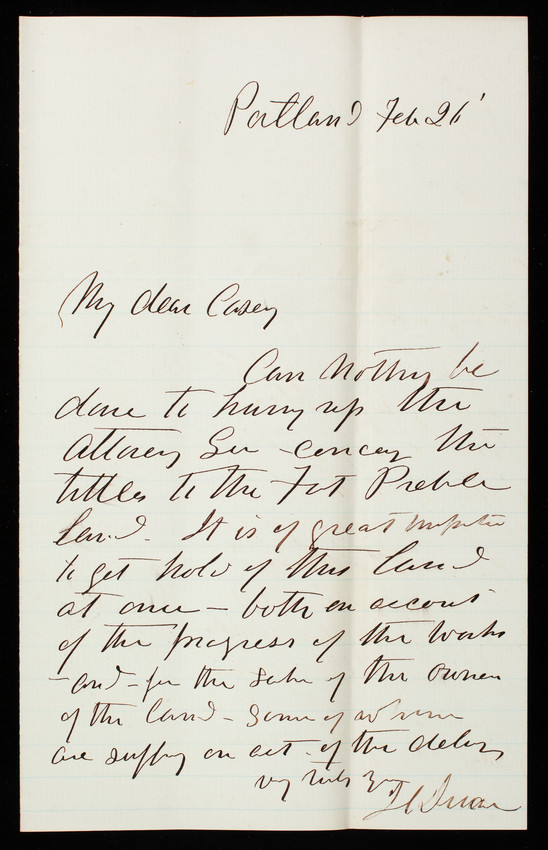 Portland Feb 26
My dear Casey
Can nothing be
done to hurry up the
Attorney Gen -concey the
tittles to the Fort Preble
land. It is of great
to get hold of this land
at once - both on account
of the progress of the works
- and - for the sake of the owners
of the land - Some of whom
are suffring on act. of the delay
very truly yrs